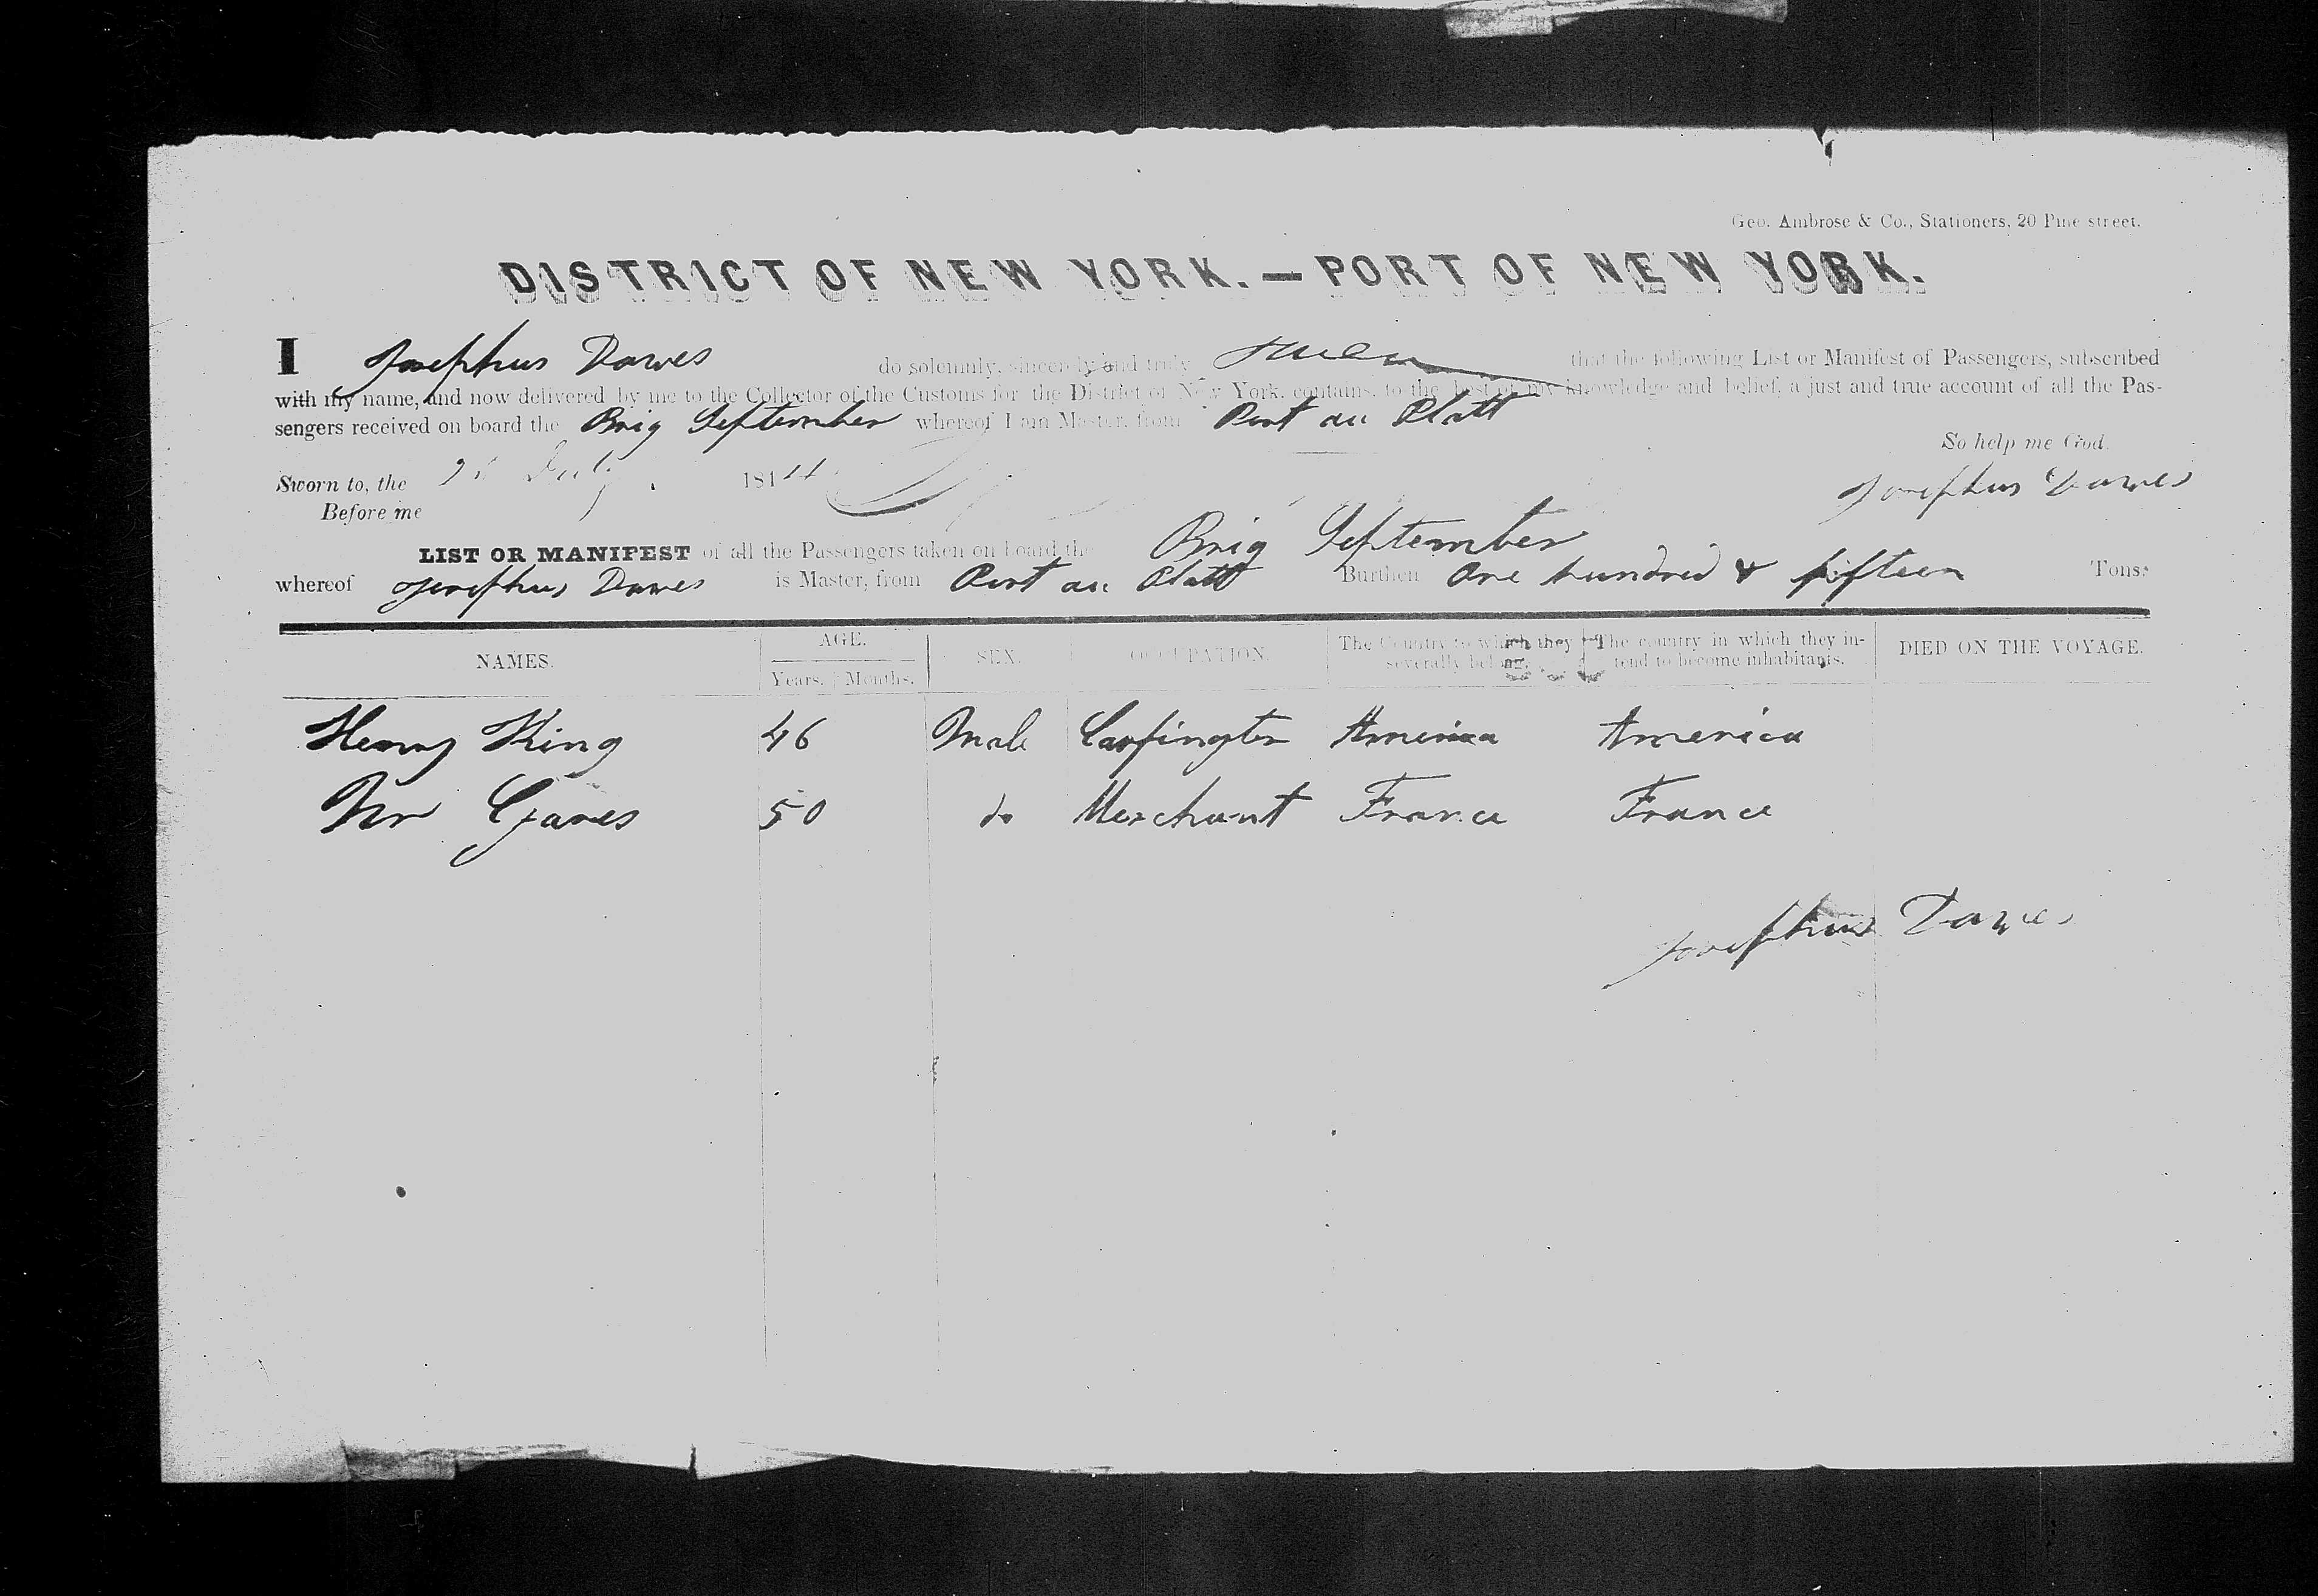 Geo. Ambrose & Co., Stationers, 20 Pine street.
DISTRICT OF NEW YORK.—PORT OF NEW YORK.
I Josephus Dawes do solemnly, sincerely and truly swear that the following List or Manifest of Passengers, subscribed
with my name, and now delivered by me to the Collector of the Customs for the District of New York, contains, to the best of my knowledge and belief, a just and true account of all the Pas-
sengers received on board the Brig September whereof I am Master, from Port au Platt
So help me God.
Sworn to, the July 1844 Josephus Dawes
Before me
LIST OR MANIFEST of all the Passengers taken on board the Brig September
whereof Josephus Dawes is Master, from Port au Platt Burthen One hundred & fifteen Tons.
NAMES. AGE. Years. Months. SEX. OCCUPATION. The Country to which they severally belong. The country in which they in-tend to become inhabitants. DIED ON THE VOYAGE.
Henry King 46 Male America America
Mr 50 do Merchant France France
Josephus Dawes